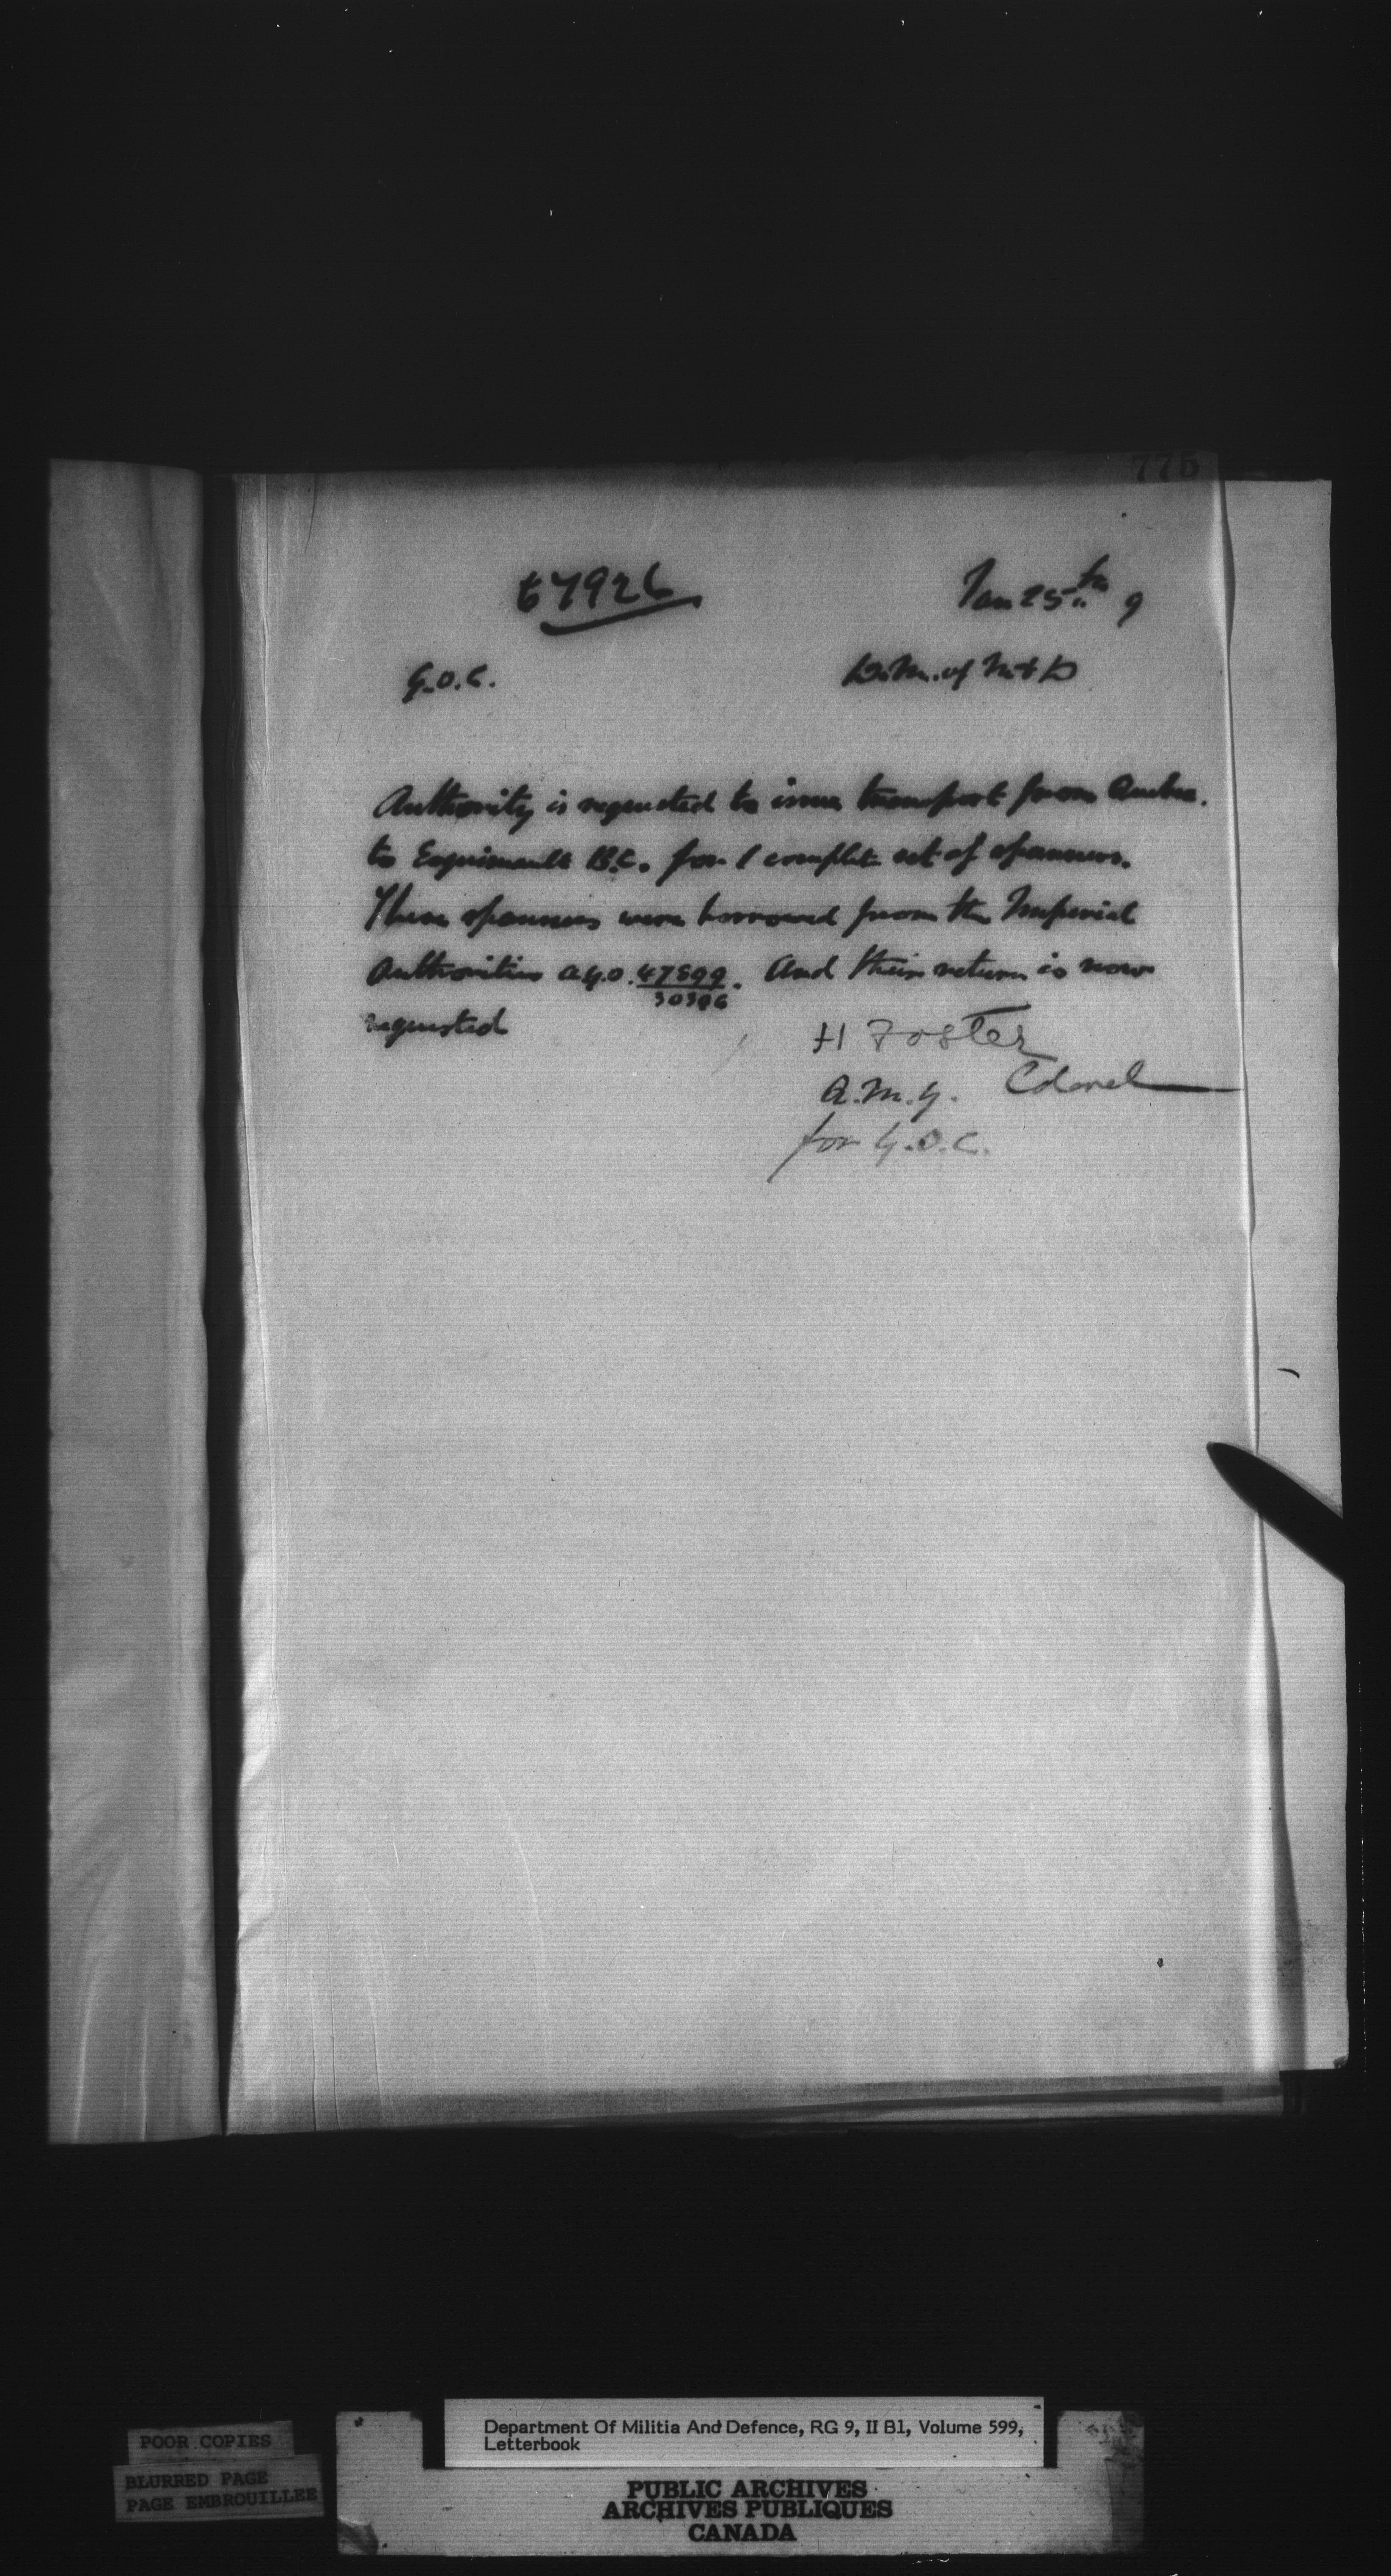 775
67926
Jan 25th 9
G.O.C.
D.M. of M & D
Authority is requested to issue transport from Quebec.
to Esquimault B.C. for 1 complete set of spanners.
These spanners were borrowed from the Imperial
Authorities A.G.O. 47899. And their return is now
30396
requested
H Foster
Colonel
Q.M.G.
for G.O.C.
Department Of Militia And Defence, RG 9, II B1, Volume 599,
Letterbook
POOR COPIES
BLURRED PAGE
PAGE EMBROUILLEE
PUBLIC ARCHIVES
ARCHIVES PUBLIQUES
CANADA